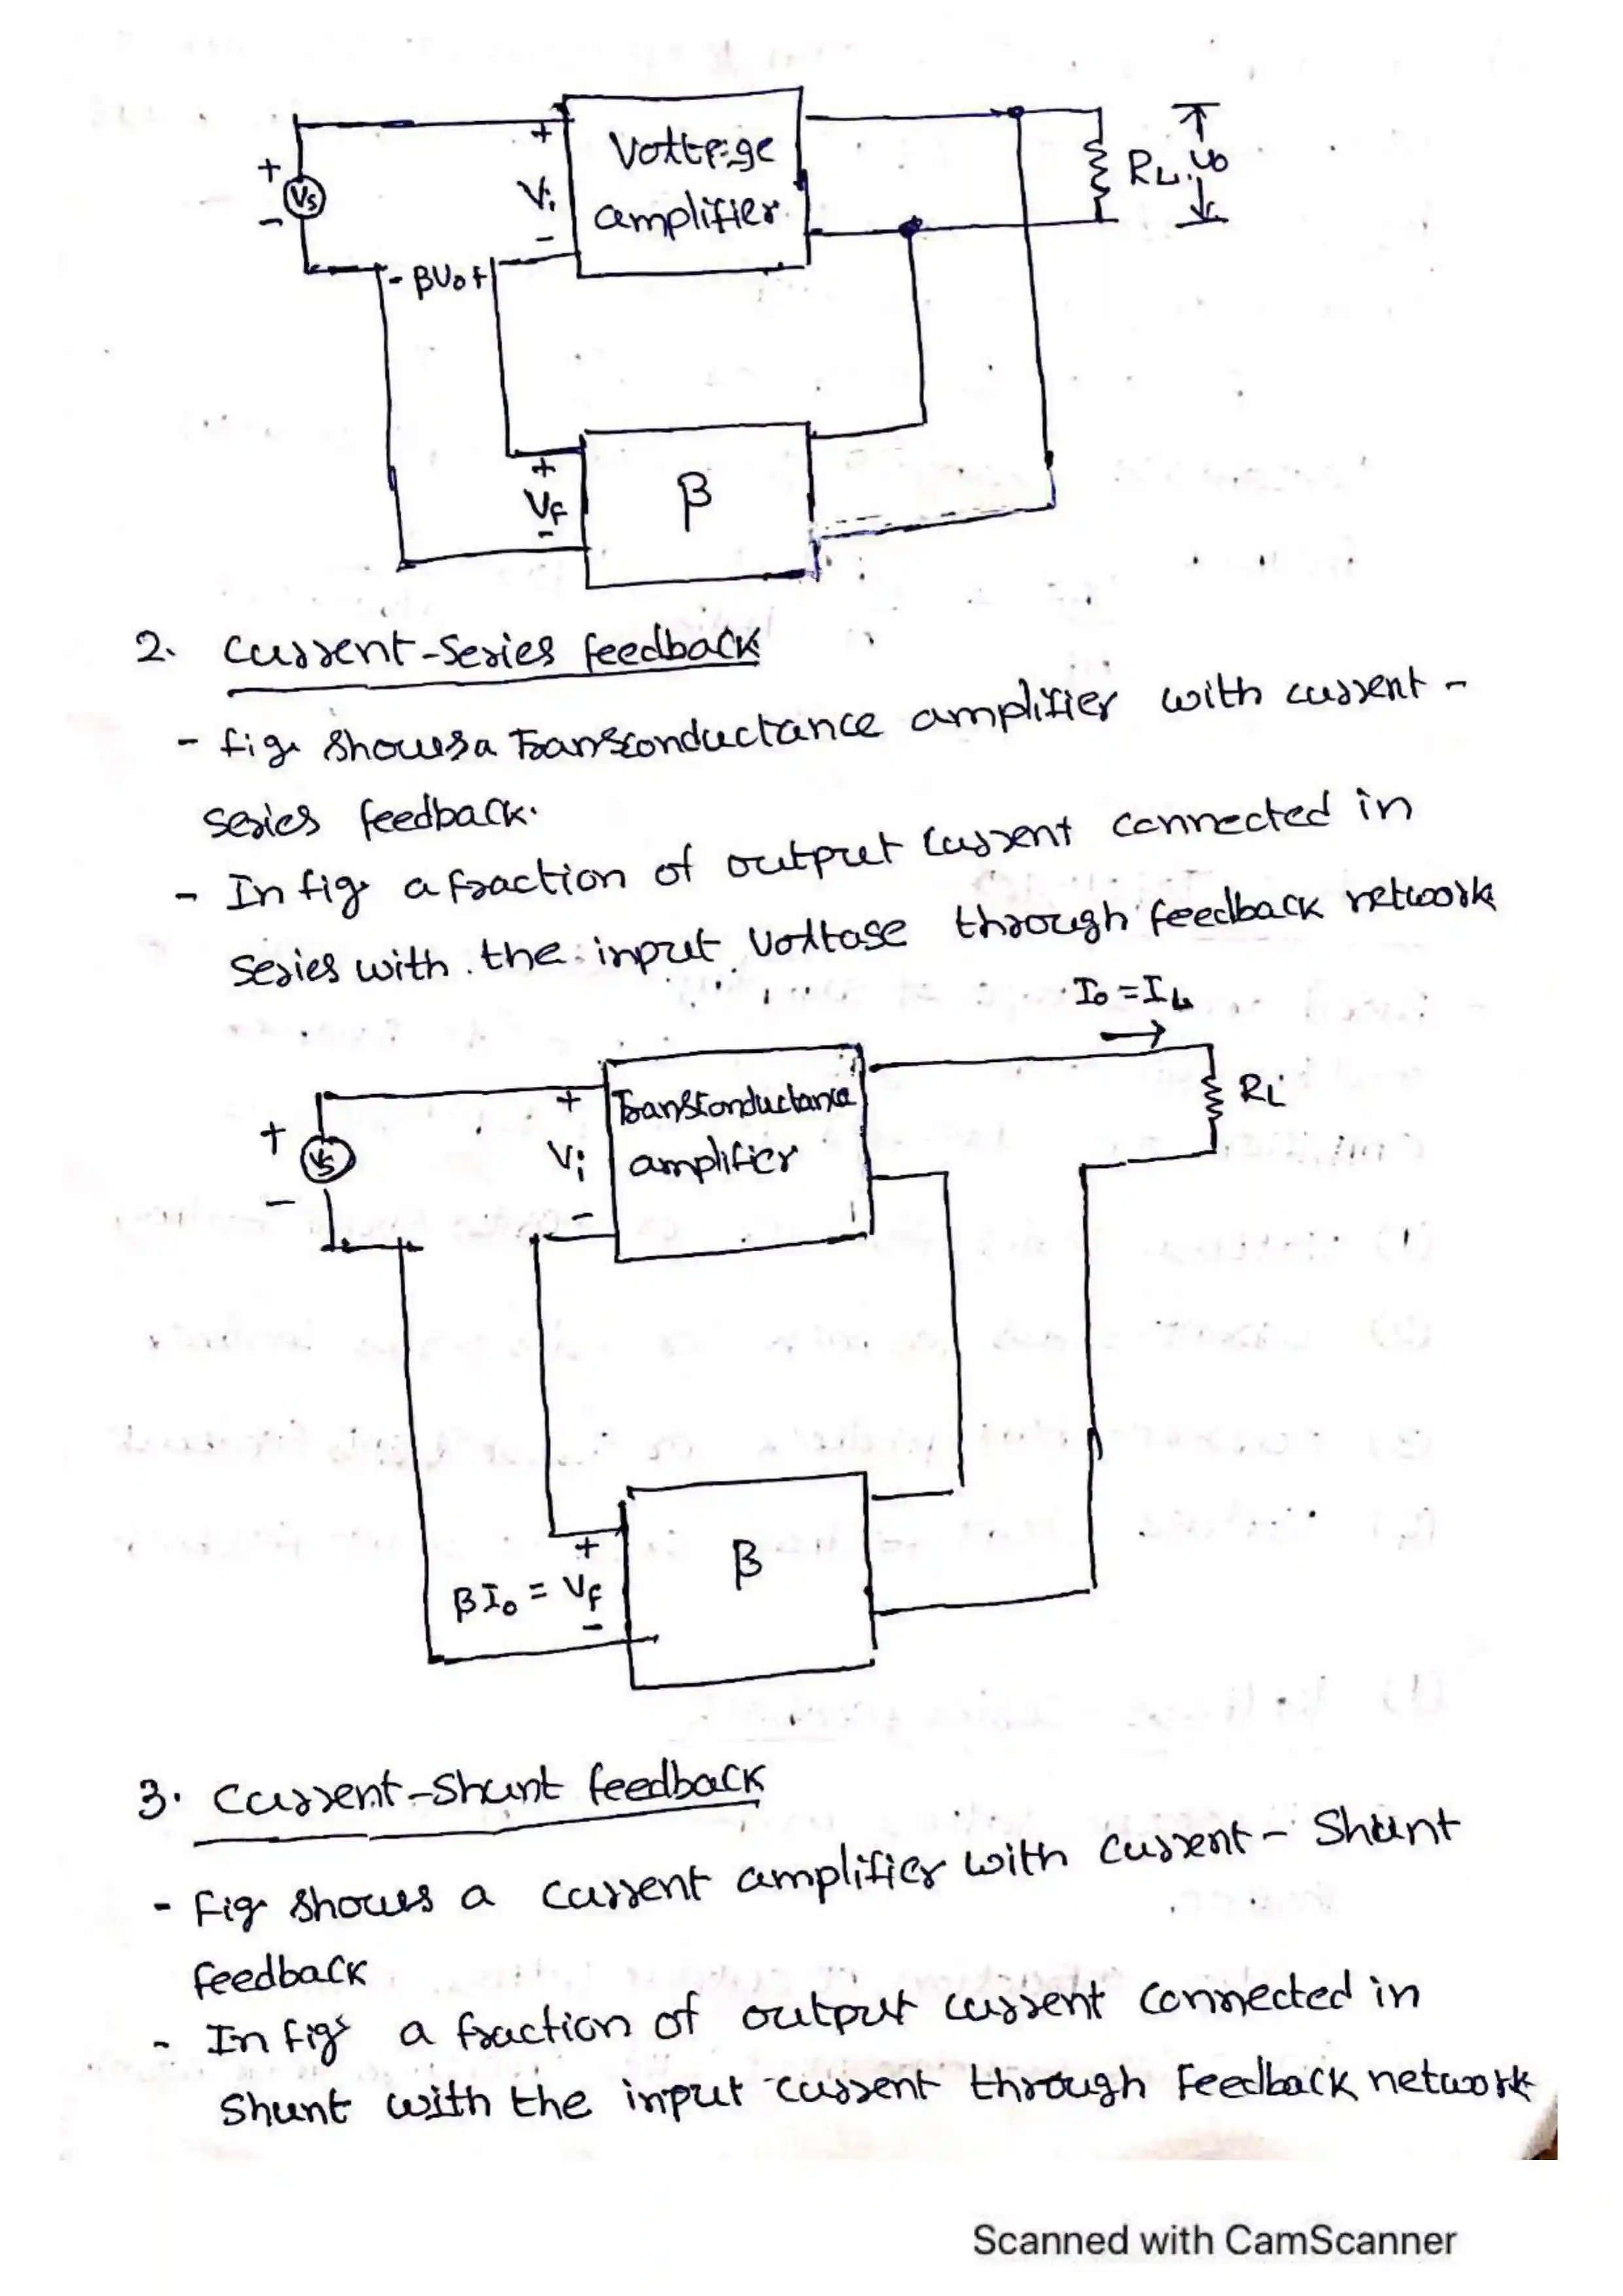 Voltage
amplifier
+
Vi
-
+
Vs
-
RL
Vo
- βVo +
+
Vf
-
β
2. Current-Series feedback
- fig. shows a Transconductance amplifier with current-
series feedback.
- In fig. a fraction of output current connected in
series with the input voltage through feedback network
Io = IL
Transconductance
amplifier
+
Vi
-
+
Vs
-
RL
+
βIo = Vf
-
β
3. Current-Shunt feedback
- Fig. shows a current amplifier with current - Shunt
feedback
- In fig. a fraction of output current connected in
Shunt with the input current through Feedback network
Scanned with CamScanner